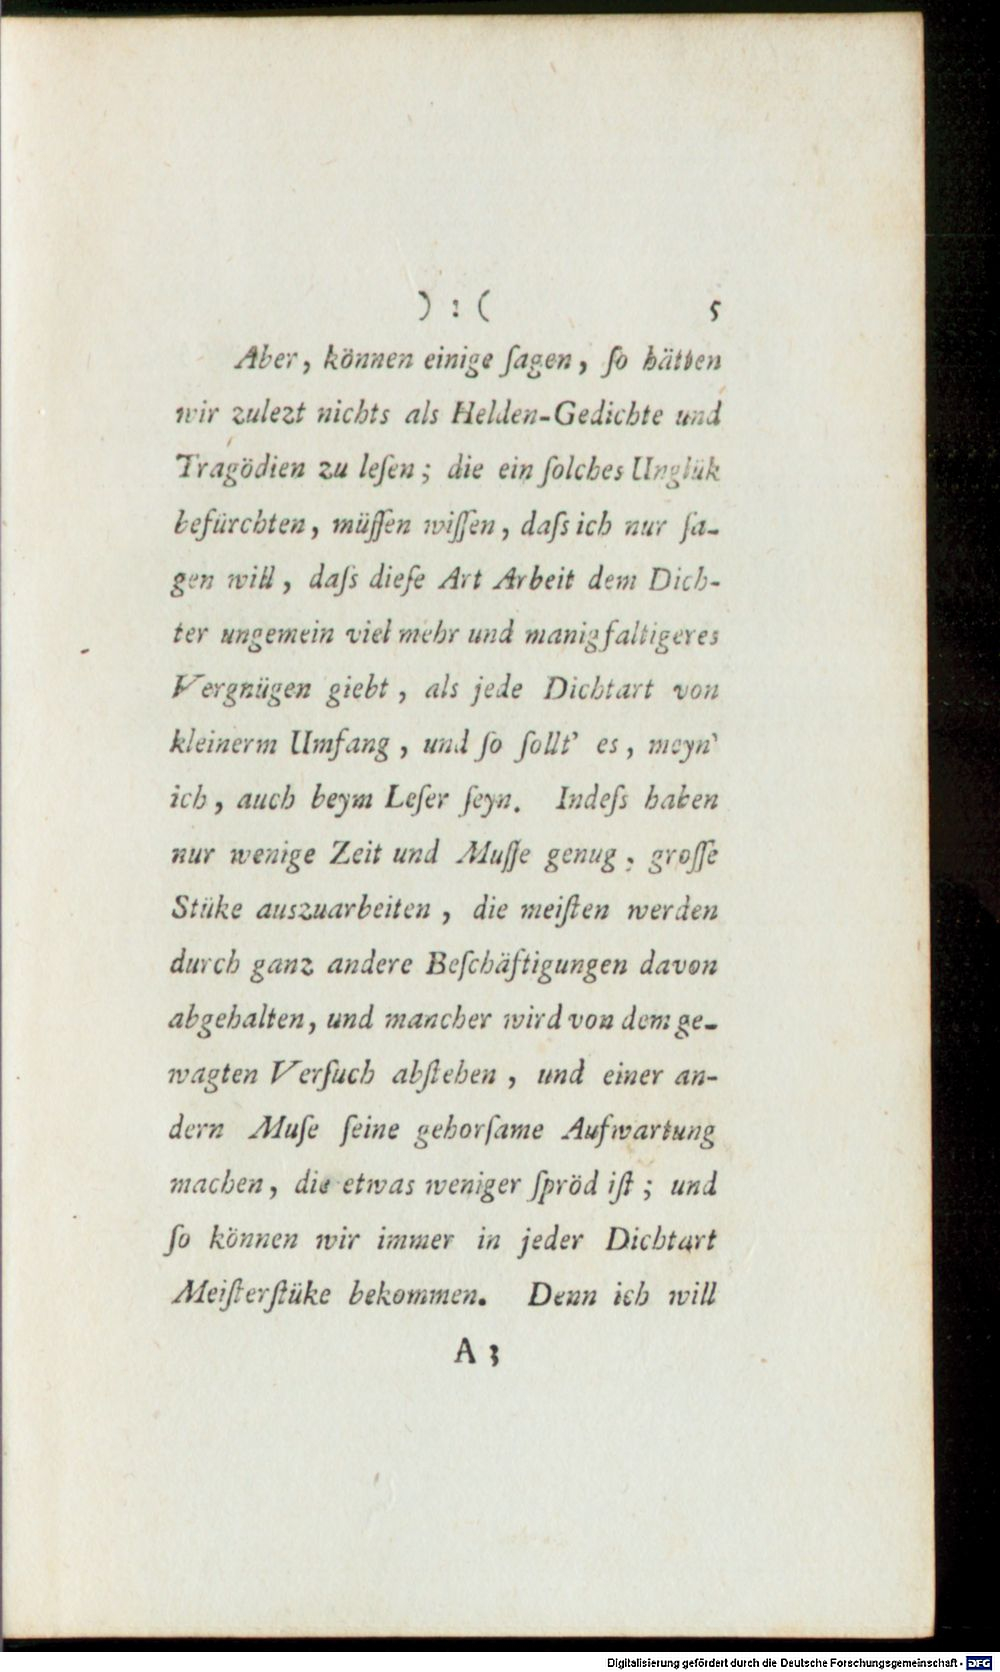 ) : ( 5
Aber, können einige ſagen, ſo hätten
wir zulezt nichts als Helden-Gedichte und
Tragödien zu leſen; die ein ſolches Unglük
befürchten, müſſen wiſſen, daſs ich nur ſa-
gen will, daſs dieſe Art Arbeit dem Dich-
ter ungemein viel mehr und manigfaltigeres
Vergnügen giebt, als jede Dichtart von
kleinerm Umfang, und ſo ſollt' es, meyn'
ich, auch beym Leſer ſeyn. Indeſs haben
nur wenige Zeit und Muſſe genug, groſſe
Stüke auszuarbeiten, die meiſten werden
durch ganz andere Beſchäftigungen davon
abgehalten, und mancher wird von dem ge-
wagten Verſuch abſtehen, und einer an-
dern Muſe ſeine gehorſame Aufwartung
machen, die etwas weniger ſpröd iſt; und
ſo können wir immer in jeder Dichtart
Meiſterſtüke bekommen. Denn ich will
A 3
Digitalisierung gefördert durch die Deutsche Forschungsgemeinschaft - DFG